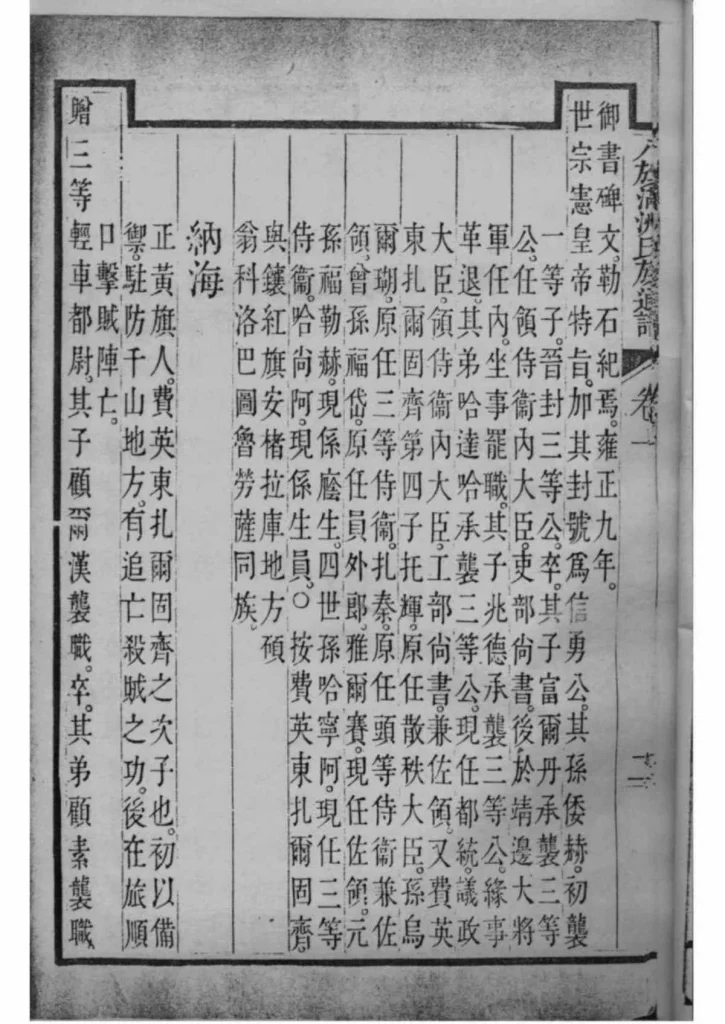 八旗滿洲氏族通譜 卷一
御書碑文。勒石紀焉。雍正九年。
世宗憲皇帝特旨。加其封號爲信勇公。其孫倭赫。初襲
一等子。晉封三等公。卒。其子富爾丹承襲三等
公。任領侍衞內大臣。吏部尚書。後於靖邊大將
軍任內。坐事罷職。其子兆德承襲三等公。緣事
革退。其弟哈達哈承襲三等公。現任都統。議政
大臣。領侍衞內大臣。工部尚書。兼佐領。又費英
東扎爾固齊第四子托輝。原任散秩大臣。孫烏
爾瑚。原任三等侍衞。扎秦。原任頭等侍衞兼佐
領。曾孫福岱。原任員外郎。雅爾賽。現任佐領。元
孫福勒赫。現係廕生。四世孫哈寧阿。現任三等
侍衞。哈尚阿。現係生員。○按費英東扎爾固齊。
與鑲紅旗安楮拉庫地方碩
翁科洛巴圖魯勞薩同族。
納海
正黃旗人。費英東扎爾固齊之次子也。初以備
禦。駐防千山地方。有追亡殺賊之功。後在旅順
口擊賊陣亡。
贈三等輕車都尉。其子顧爾漢襲職。卒。其弟顧素襲職